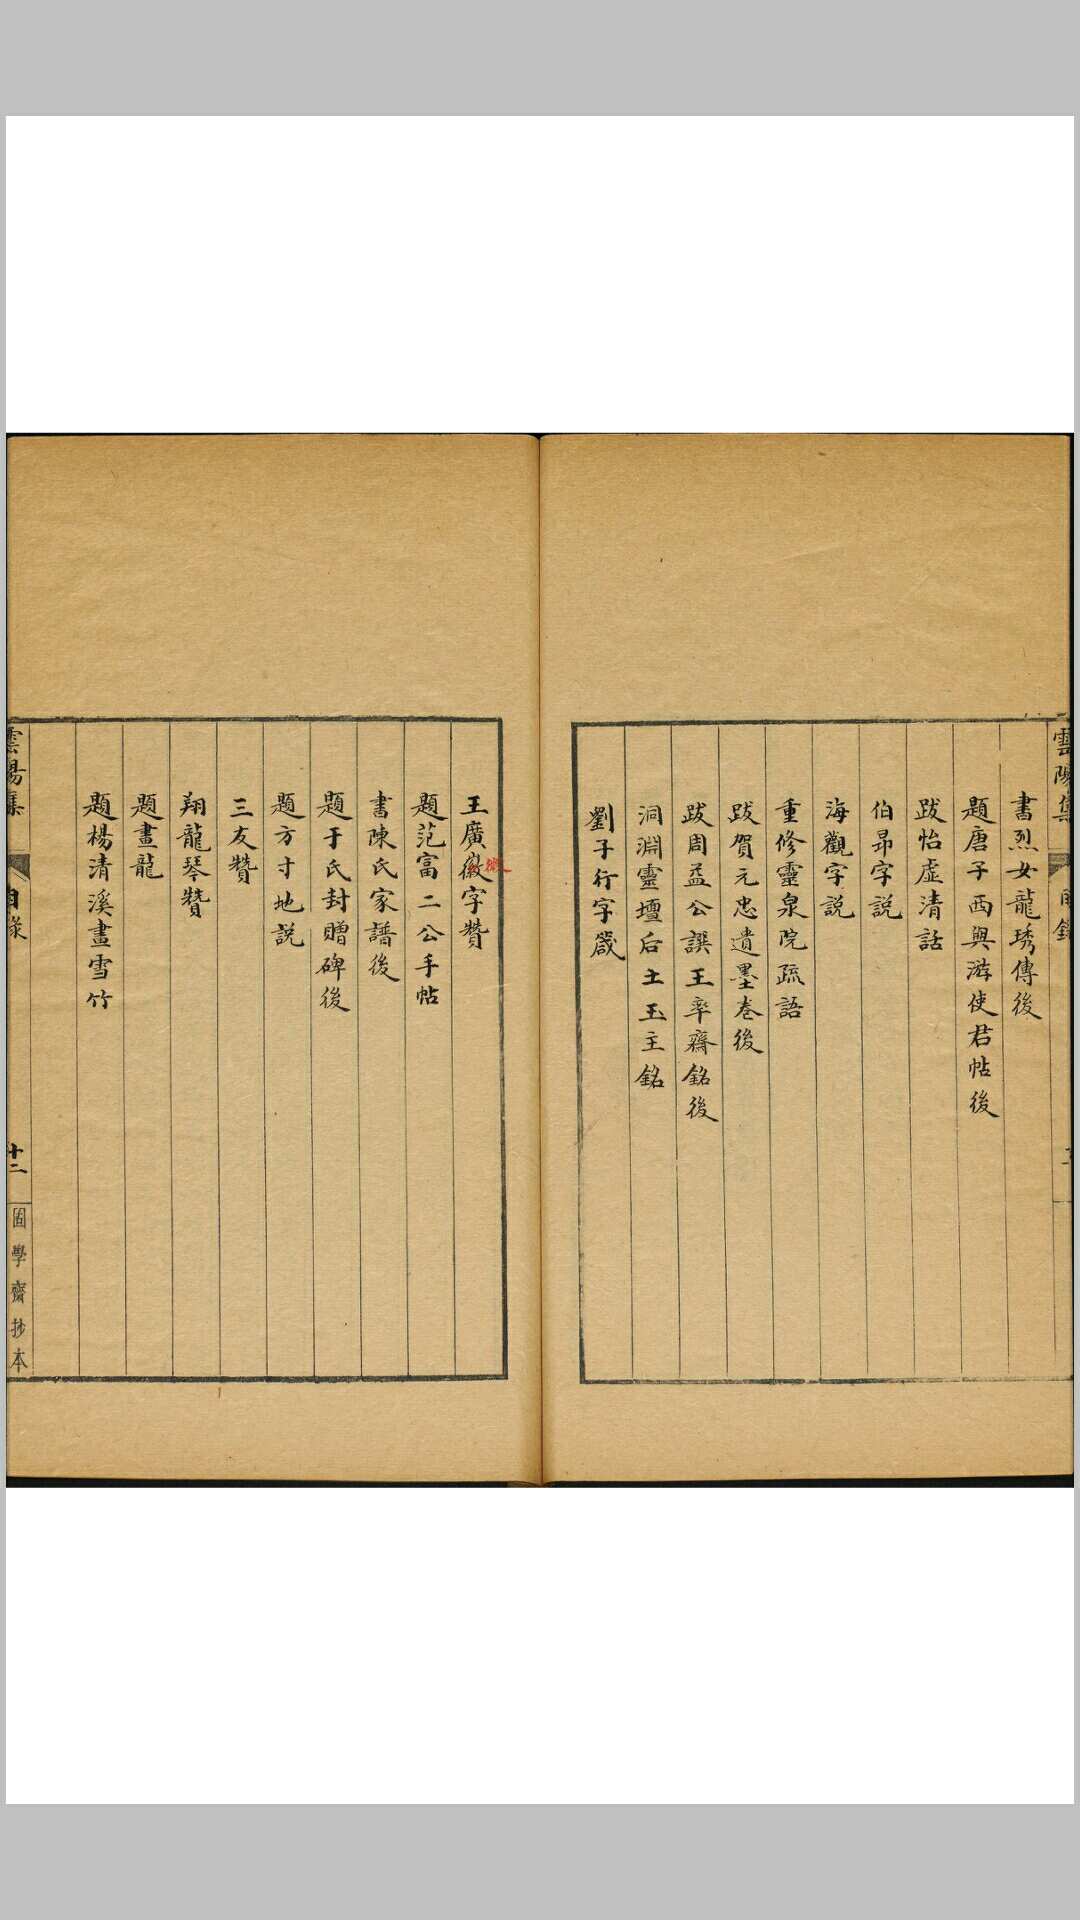 雲陽集
目錄
書烈女龍琇傳後
題唐子西與游使君帖後
跋怡虛清話
伯昂字説
海觀字説
重修靈泉院疏語
跋賀元忠遺墨卷後
跋周益公譔王率齋銘後
洞淵靈壇后土玉主銘
劉子行字箴
王廣徽字贊
題范富二公手帖
書陳氏家譜後
題于氏封贈碑後
題方寸地説
三友贊
翔龍琴贊
題畫龍
題楊清溪畫雪竹
雲陽集
目錄
十二
固學齋抄本